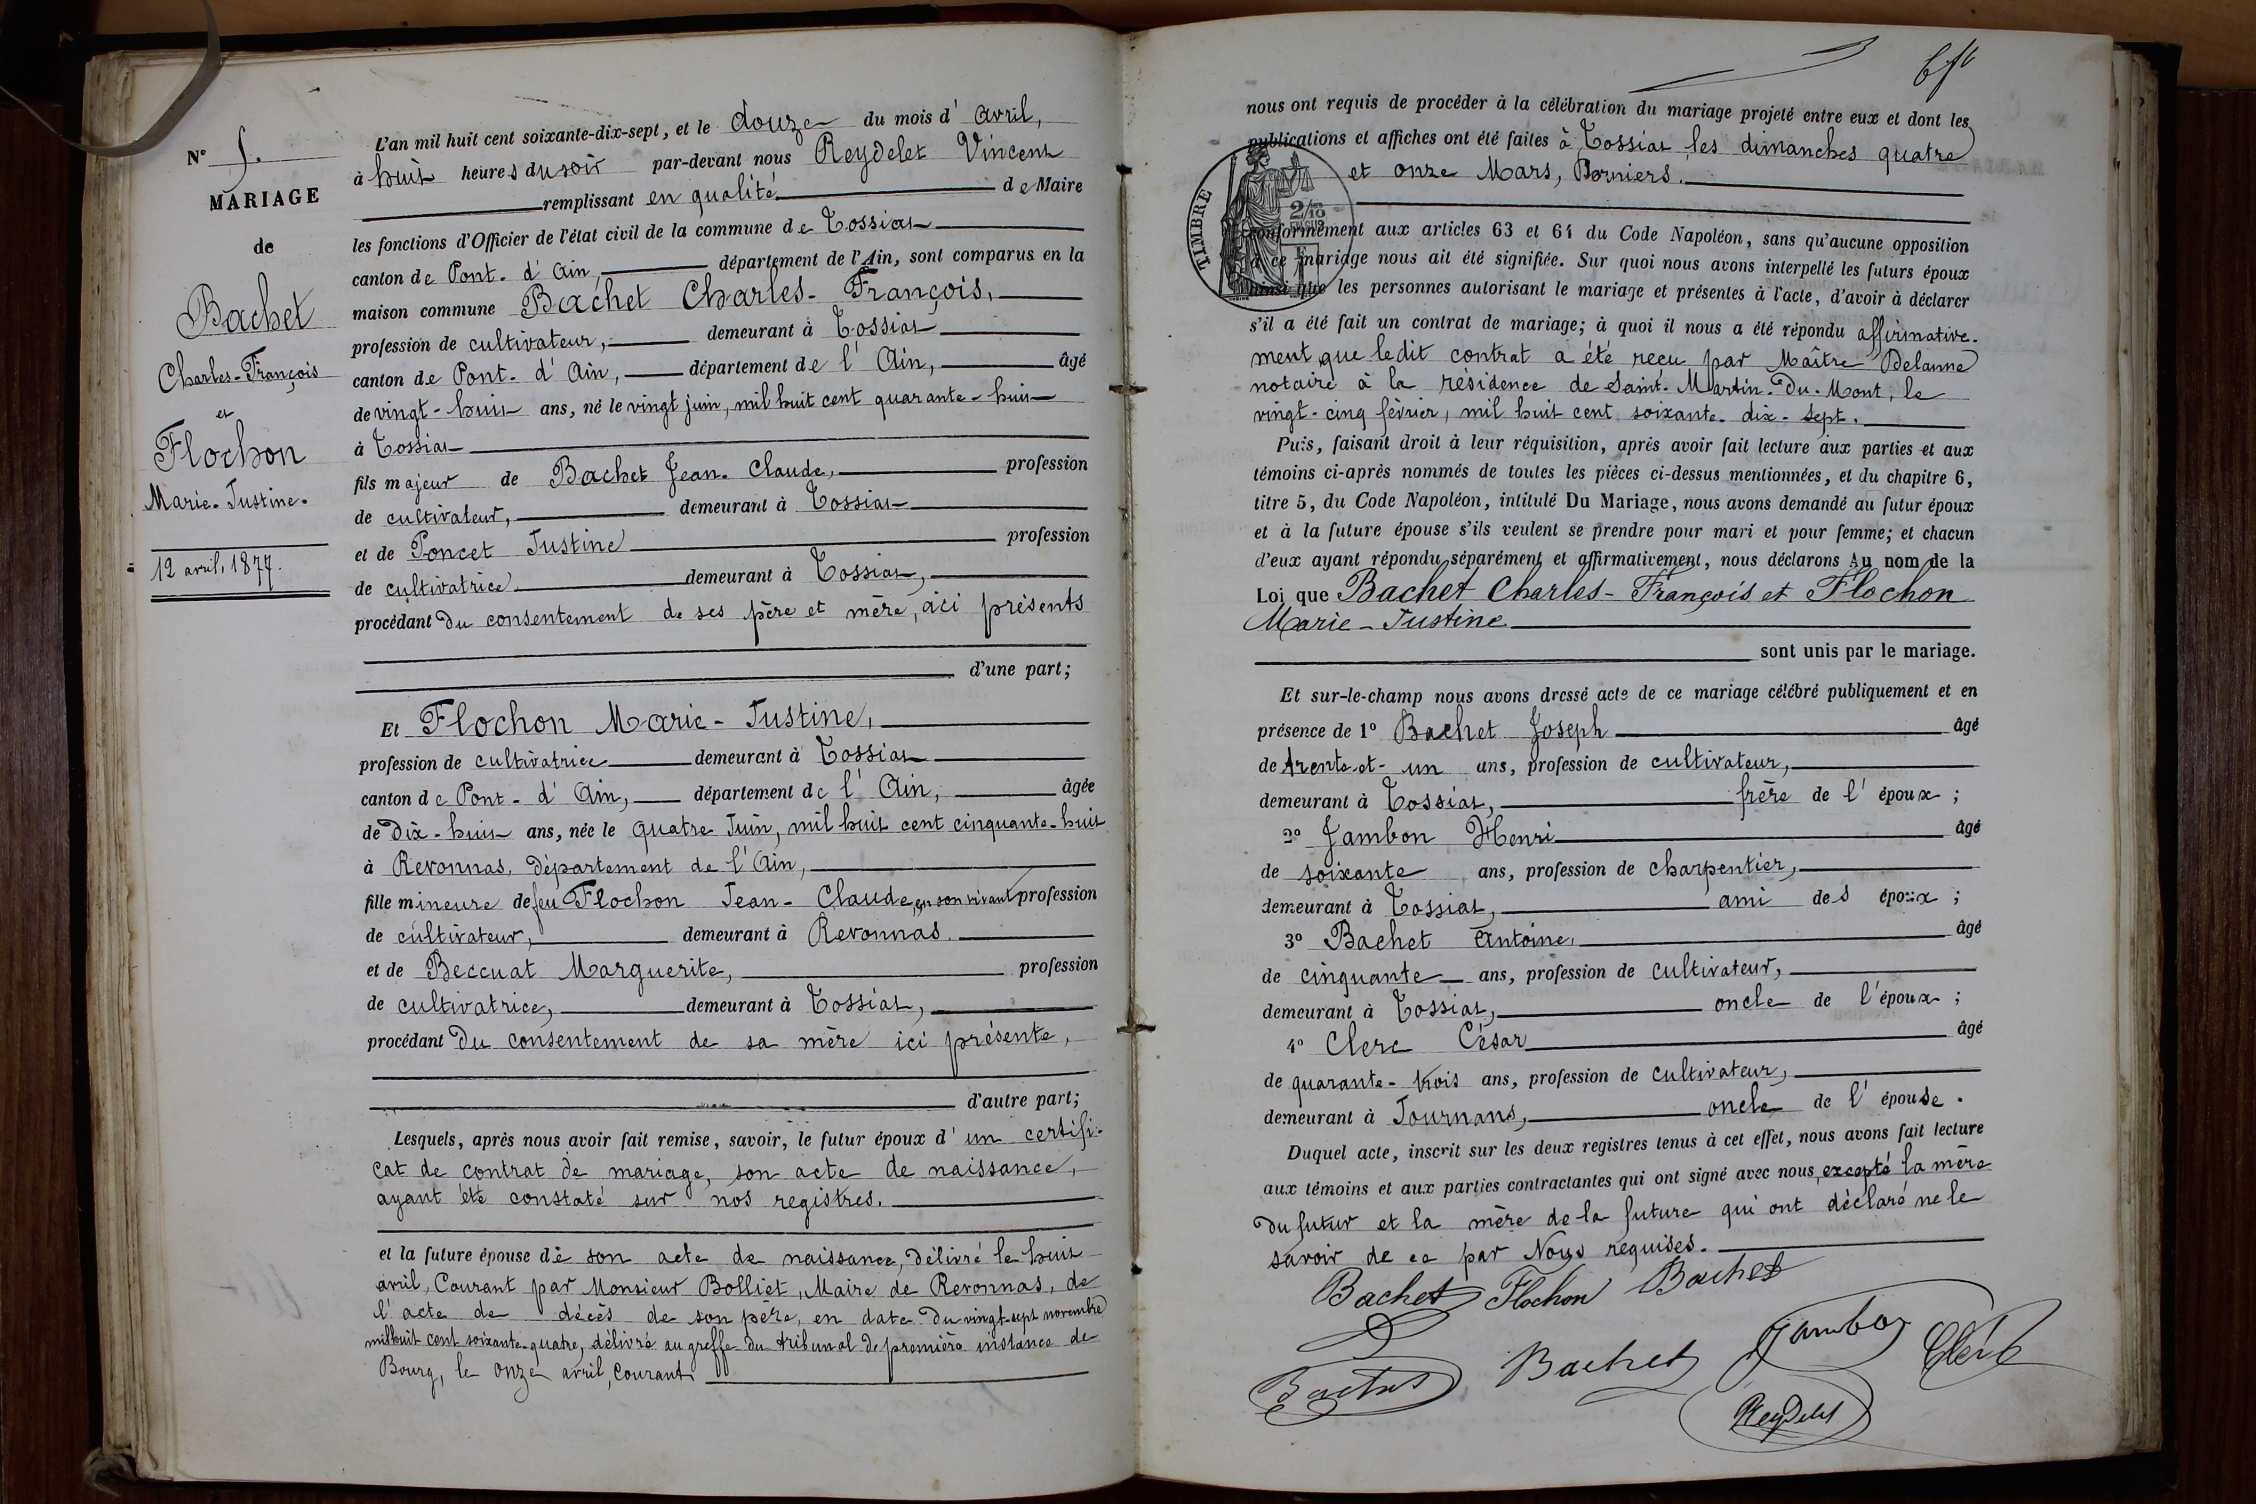 N° 5.
MARIAGE
de
Bachet
Charles-François
et
Flochon
Marie-Justine.
12 avril, 1877.
L'an mil huit cent soixante-dix-sept, et le douze du mois d'avril,
à huit heures du soir par-devant nous Reydelet Vincent
remplissant en qualité de Maire
les fonctions d'Officier de l'état civil de la commune de Tossiat
canton de Pont-d'Ain, département de l'Ain, sont comparus en la
maison commune Bachet Charles-François,
profession de cultivateur, demeurant à Tossiat
canton de Pont-d'Ain, département de l'Ain, âgé
de vingt-huit ans, né le vingt juin, mil huit cent quarante-huit
à Tossiat
fils majeur de Bachet Jean-Claude, profession
de cultivateur, demeurant à Tossiat
et de Poncet Justine profession
de cultivatrice demeurant à Tossiat,
procédant du consentement de ses père et mère, ici présents
d'une part;
Et Flochon Marie-Justine,
profession de cultivatrice demeurant à Tossiat
canton de Pont-d'Ain, département de l'Ain, âgée
de dix-huit ans, née le quatre Juin, mil huit cent cinquante-huit
à Revonnas, département de l'Ain,
fille mineure de feu Flochon Jean-Claude, en son vivant profession
de cultivateur, demeurant à Revonnas
et de Beccuat Marguerite, profession
de cultivatrice, demeurant à Tossiat,
procédant du consentement de sa mère ici présente,
d'autre part;
Lesquels, après nous avoir fait remise, savoir, le futur époux d'un certifi-
cat de contrat de mariage, son acte de naissance,
ayant été constaté sur nos registres.
et la future épouse de son acte de naissance, délivré le huit
avril, Courant par Monsieur Bolliet, Maire de Revonnas, de
l'acte de décès de son père, en date du vingt-sept novembre
mil huit cent soixante-quatre, délivré au greffe du tribunal de première instance de
Bourg, le onze avril, Courant
nous ont requis de procéder à la célébration du mariage projeté entre eux et dont les
publications et affiches ont été faites à Tossiat les dimanches quatre
et onze Mars, Derniers.
TIMBRE
2/10
conformément aux articles 63 et 64 du Code Napoléon, sans qu'aucune opposition
à ce mariage nous ait été signifiée. Sur quoi nous avons interpellé les futurs époux
ainsi que les personnes autorisant le mariage et présentes à l'acte, d'avoir à déclarer
s'il a été fait un contrat de mariage; à quoi il nous a été répondu affirmative-
ment que ledit contrat a été reçu par Maître Delanne
notaire à la résidence de Saint-Martin-du-Mont, le
vingt-cinq février, mil huit cent soixante-dix-sept.
Puis, faisant droit à leur réquisition, après avoir fait lecture aux parties et aux
témoins ci-après nommés de toutes les pièces ci-dessus mentionnées, et du chapitre 6,
titre 5, du Code Napoléon, intitulé Du Mariage, nous avons demandé au futur époux
et à la future épouse s'ils veulent se prendre pour mari et pour femme; et chacun
d'eux ayant répondu séparément et affirmativement, nous déclarons Au nom de la
Loi que Bachet Charles-François et Flochon
Marie-Justine
sont unis par le mariage.
Et sur-le-champ nous avons dressé acte de ce mariage célébré publiquement et en
présence de 1° Bachet Joseph âgé
de trente-et-un ans, profession de cultivateur,
demeurant à Tossiat, frère de l'époux;
2° Jambon Henri âgé
de soixante ans, profession de charpentier,
demeurant à Tossiat, ami des époux;
3° Bachet Antoine, âgé
de cinquante ans, profession de cultivateur,
demeurant à Tossiat, oncle de l'époux;
4° Clerc César âgé
de quarante-trois ans, profession de cultivateur,
demeurant à Journans, oncle de l'épouse.
Duquel acte, inscrit sur les deux registres tenus à cet effet, nous avons fait lecture
aux témoins et aux parties contractantes qui ont signé avec nous, excepté la mère
du futur et la mère de la future qui ont déclaré ne le
savoir de ce par Nous requises.
Bachet Flochon Bachet
Bachet Bachet Jambon Clerc
Reydelet